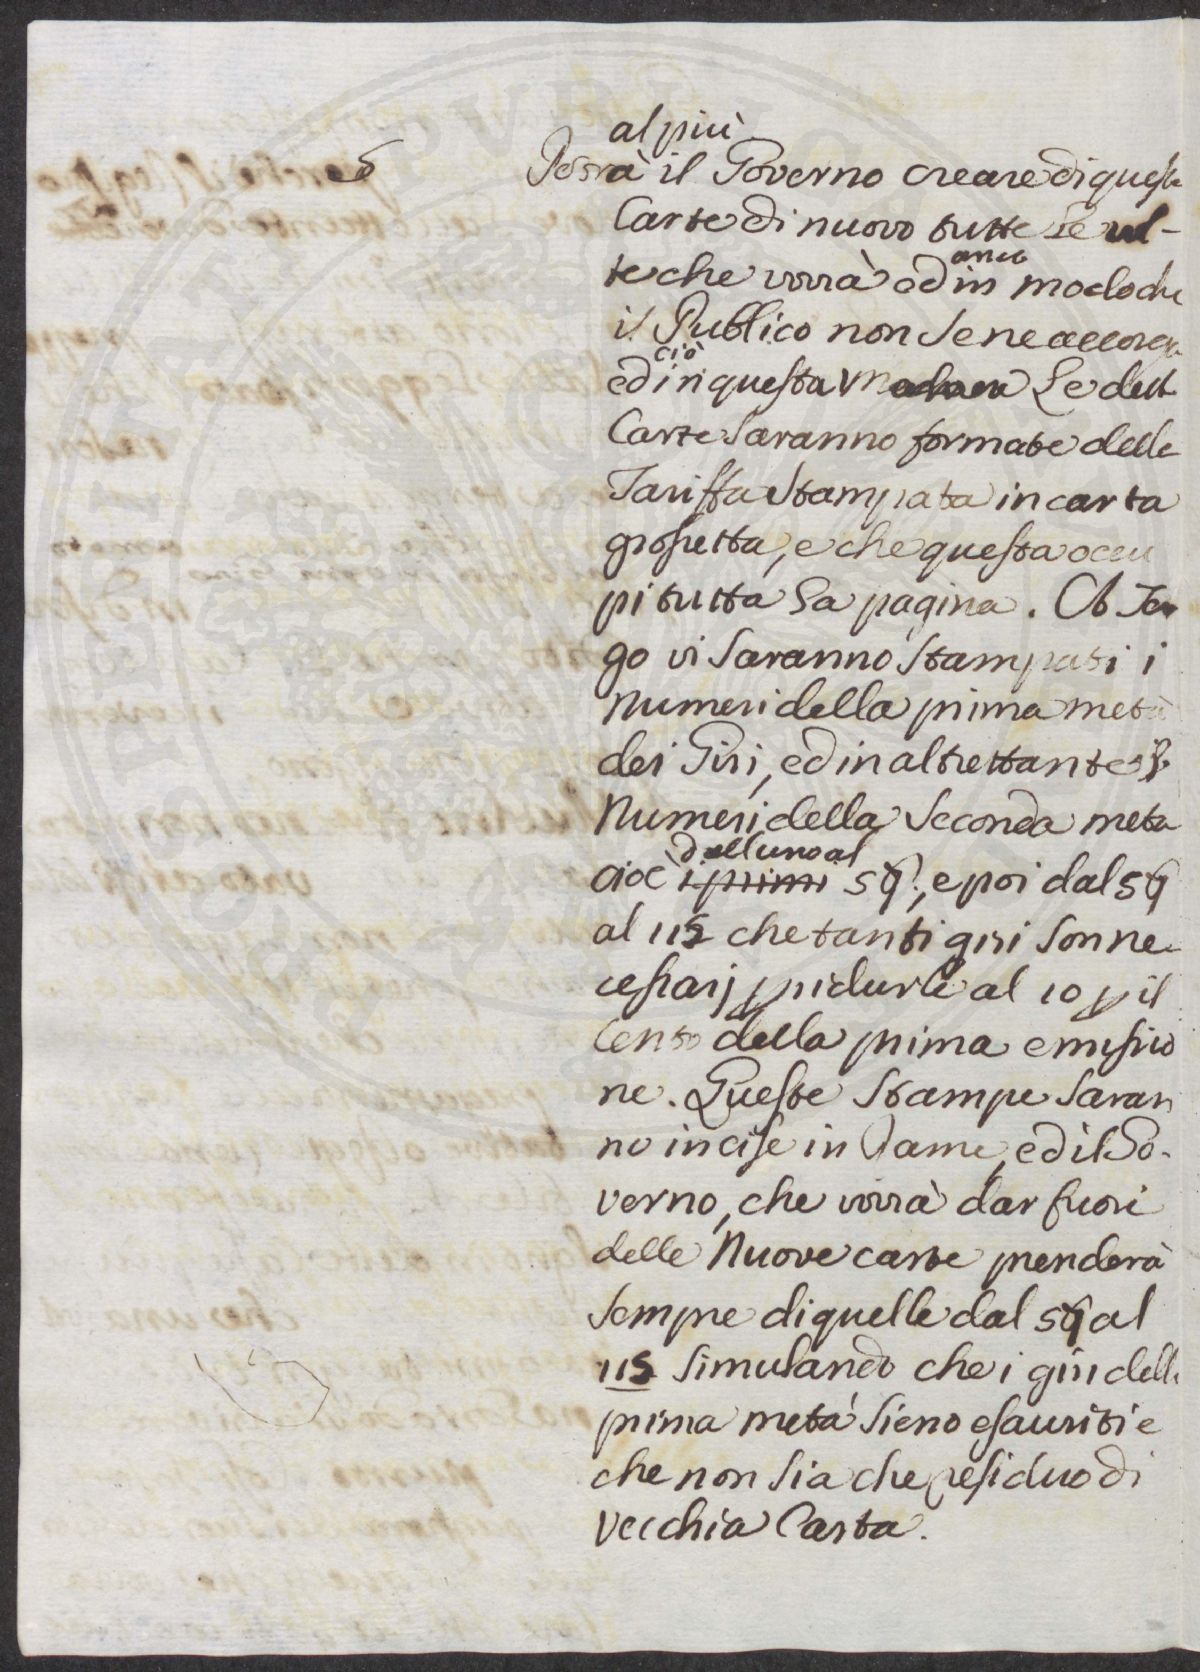 al più
6 Potrà il Governo creare di queste
Carte di nuovo tutte le vol-
te che vorrà ed anco in modo che
il Publico non se ne accorga
ed ciò in questa Le dette
Carte saranno formate delle
Tariffa stampata in carta
grossetta, e che questa occu
pi tutta la pagina. A Ter
go vi saranno stampati i
Numeri della prima metà
dei Giri, ed in altrettante i
Numeri della seconda meta
cioè i primi dall uno al 59., e poi dal 59
al 115 che tanti giri son ne
cessarj p ridurle al 10 p il
Cento della prima emissio
ne. Queste stampe saran
no incise in Rame, ed il Go-
verno, che vorrà dar fuori
delle Nuove carte prenderà
sempre di quelle dal 59 al
115 simulando che i giri della
prima metà sieno esauriti e
che non sia che residuo di
Vecchia Carta.